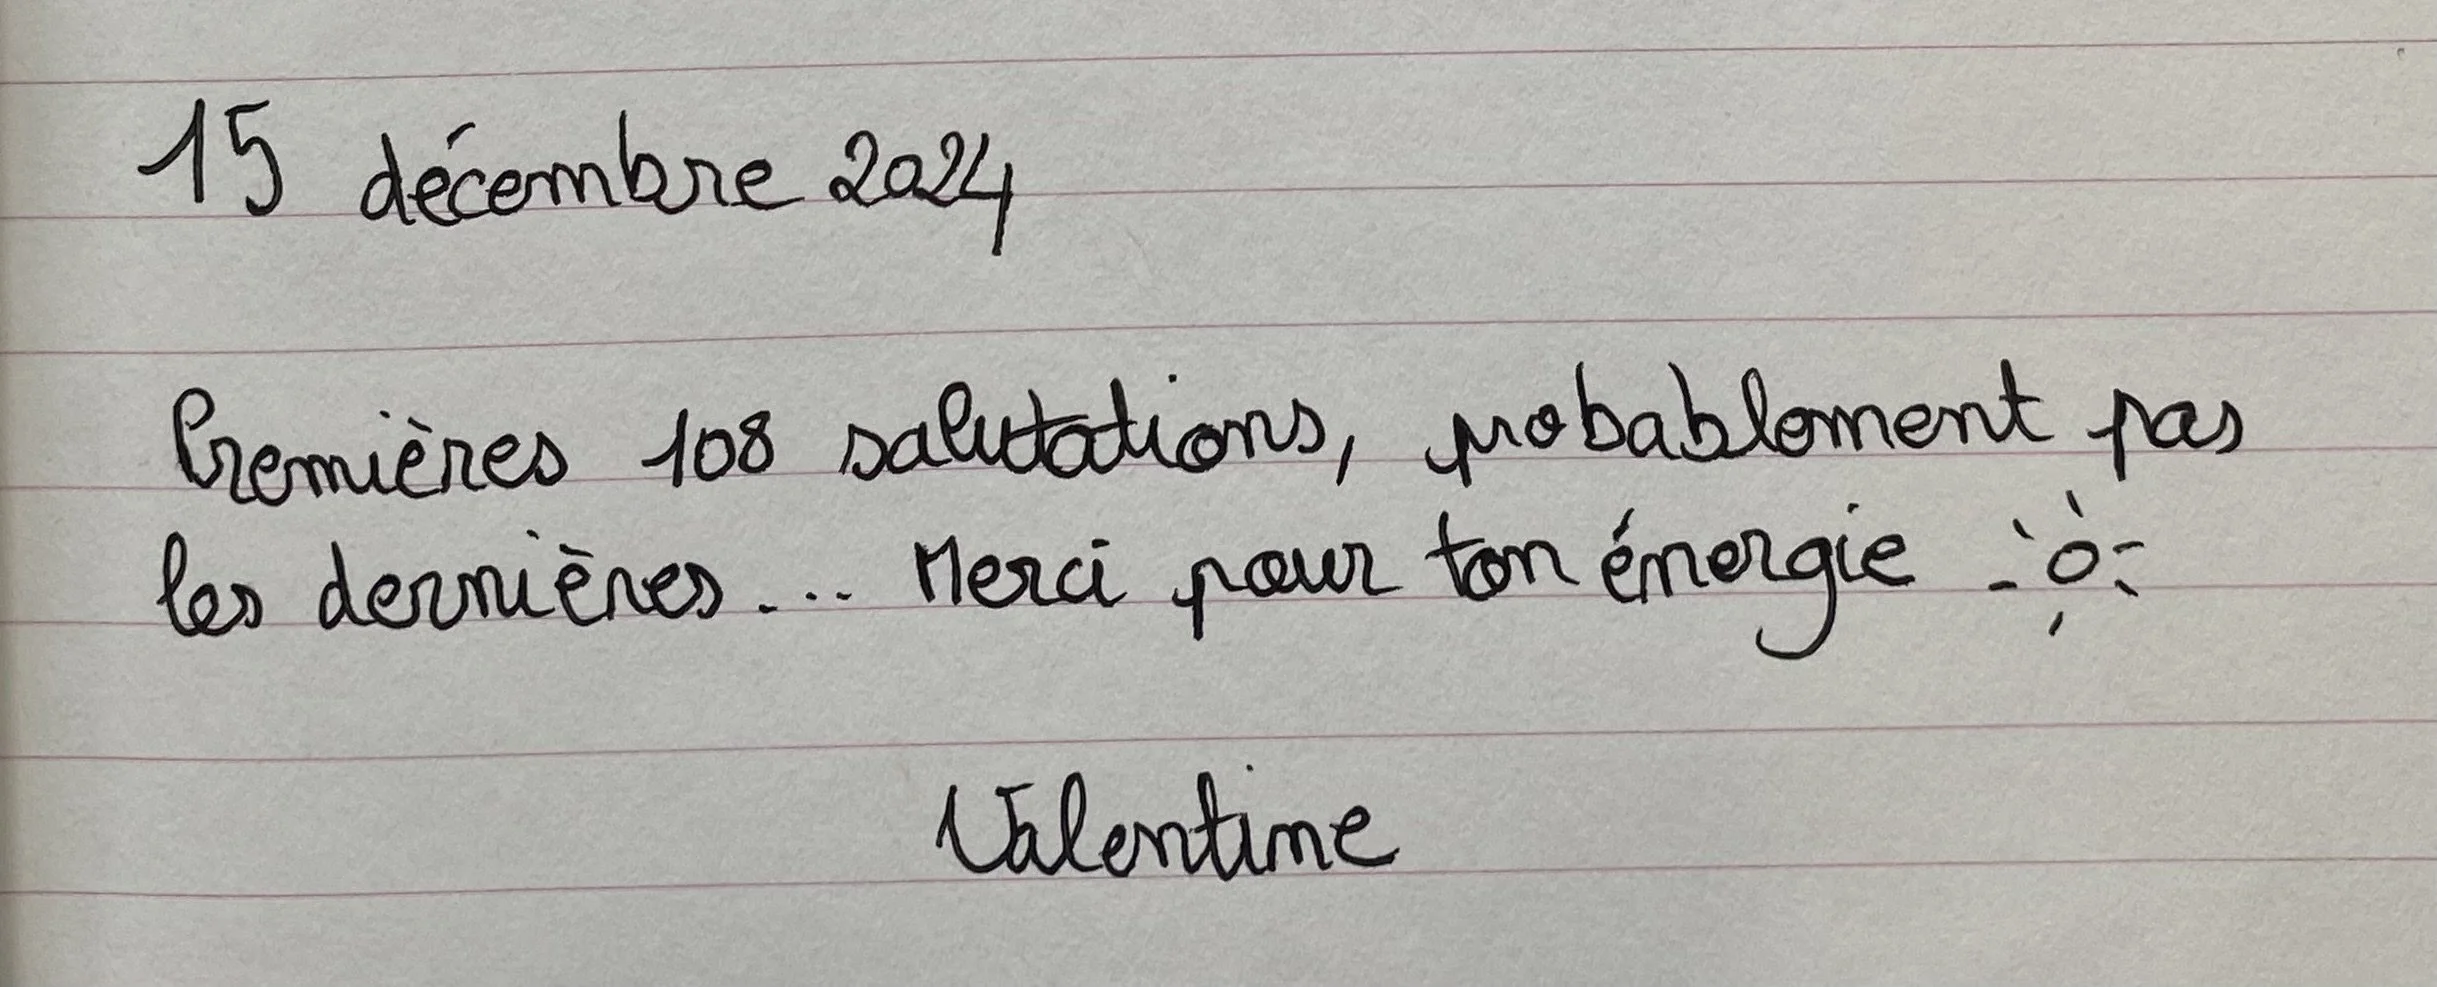 15 décembre 2024
Premières 108 salutations, probablement pas
les dernières... Merci pour ton énergie
Valentine